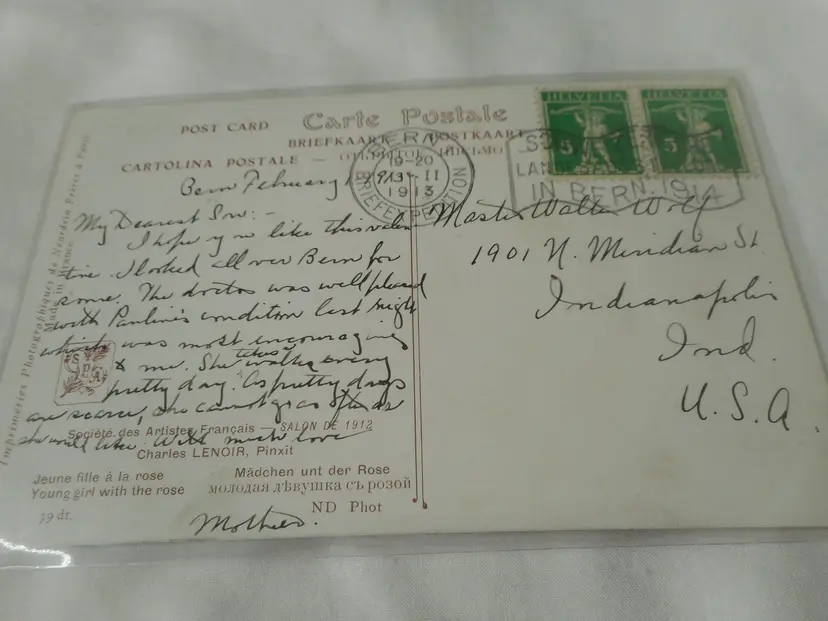 POST CARD
Carte Postale
BRIEFKAART POSTKAART
CARTOLINA POSTALE — ОТКРЫТОЕ ПИСЬМО
HELVETIA
HELVETIA
5
5
BERN
19-20
II
1913
BRIEFEXPEDITION
IN BERN. 1914
Bern February 1913
My Dearest Son:-
I hope you like this valen
tine. I looked all over Bern for
some. The doctor was well pleased
with Pauline's condition last night
which was most encouraging
to me. She takes walks every
pretty day. As pretty days
are scarce, she cannot go as often as
she would like. With much love
Mother.
Master Walter Wolf
1901 N. Meridian St.
Indianapolis
Ind.
U. S. A.
Société des Artistes Français — SALON DE 1912
Charles LENOIR, Pinxit
Jeune fille à la rose
Mädchen unt der Rose
Young girl with the rose
молодая дѣвушка съ розой
39 dt.
ND Phot
Imprimeries Photographiques de Neurdein Frères à Paris
Made in France